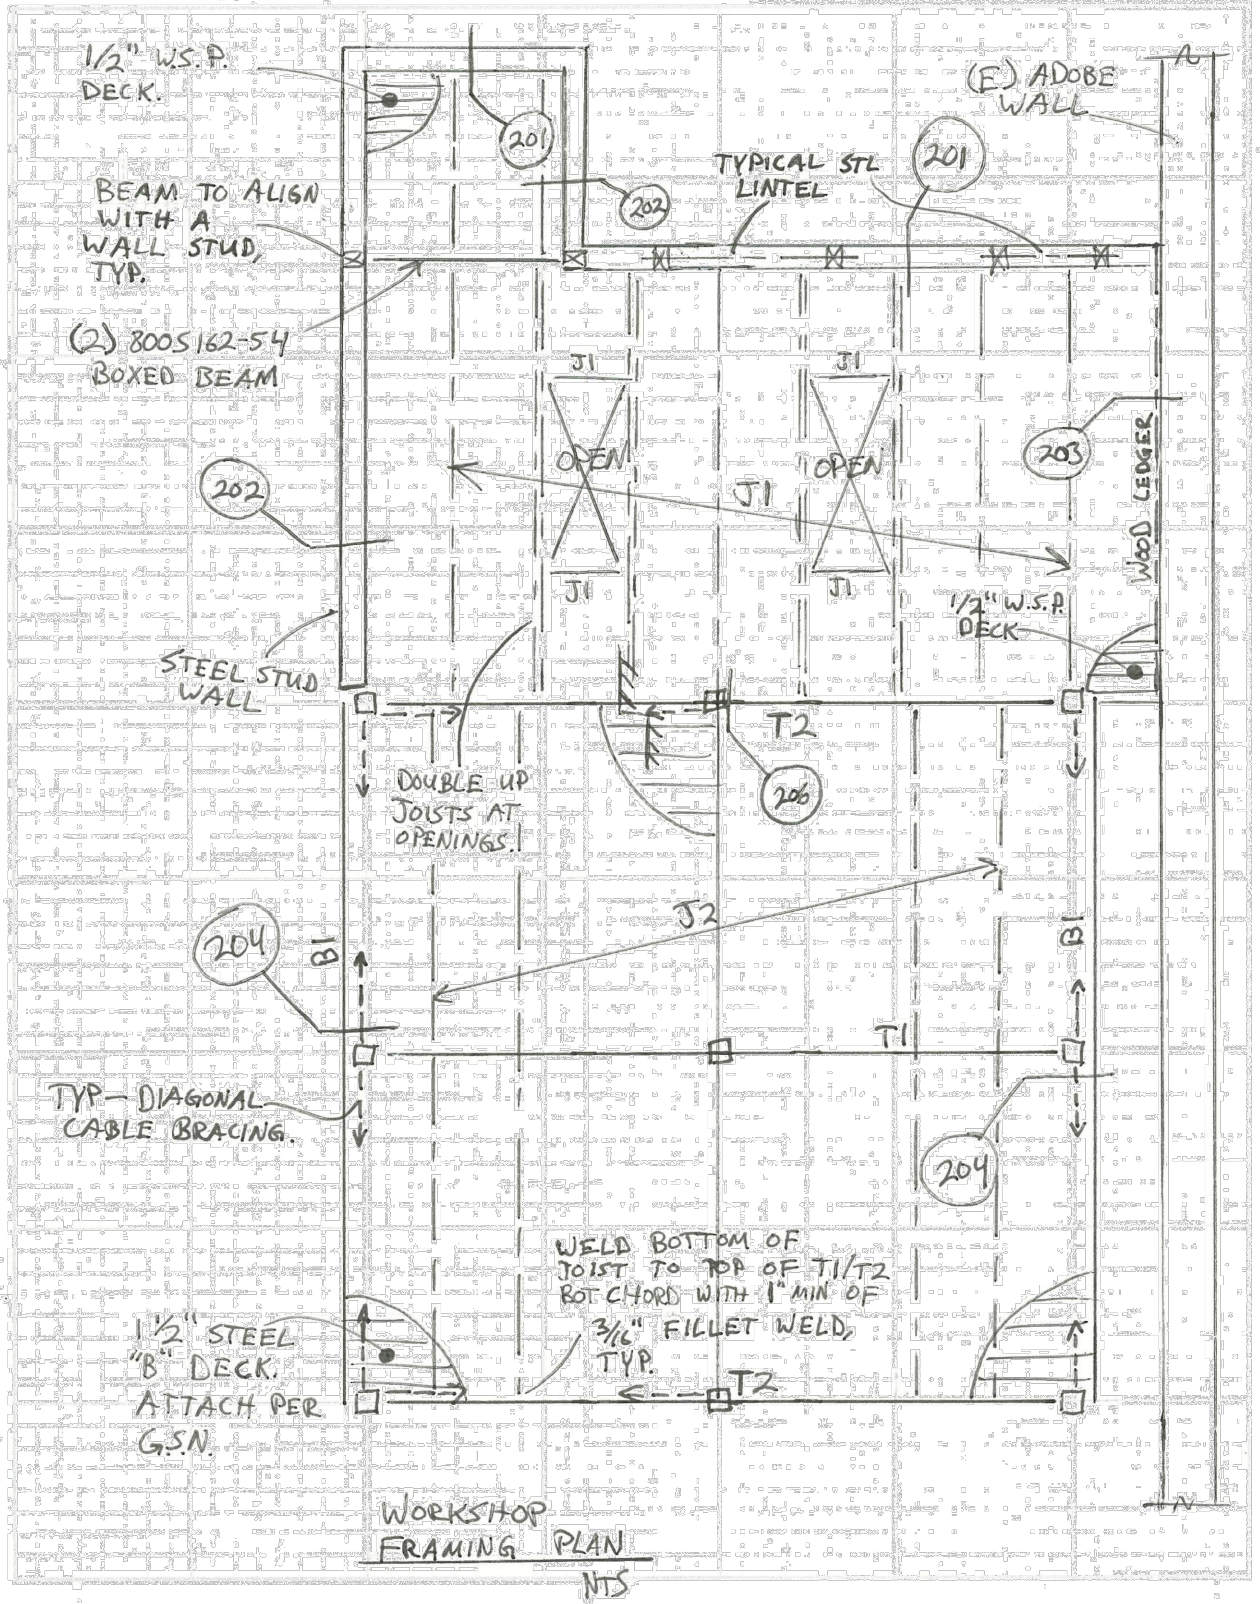 1/2" W.S.P.
DECK.
(E) ADOBE
WALL
201
201
TYPICAL STL
LINTEL
202
BEAM TO ALIGN
WITH A
WALL STUD,
TYP.
(2) 800S162-54
BOXED BEAM
J1
J1
OPEN
OPEN
J1
203
WOOD LEDGER
202
J1
J1
1/2" W.S.P.
DECK
STEEL STUD
WALL
T2
DOUBLE UP
JOISTS AT
OPENINGS.
206
J2
204
B1
B1
T1
TYP - DIAGONAL
CABLE BRACING.
204
WELD BOTTOM OF
JOIST TO TOP OF T1/T2
BOT CHORD WITH 1" MIN OF
3/16" FILLET WELD,
TYP.
1 1/2" STEEL
"B" DECK.
ATTACH PER
G.S.N.
T2
WORKSHOP
FRAMING PLAN
NTS